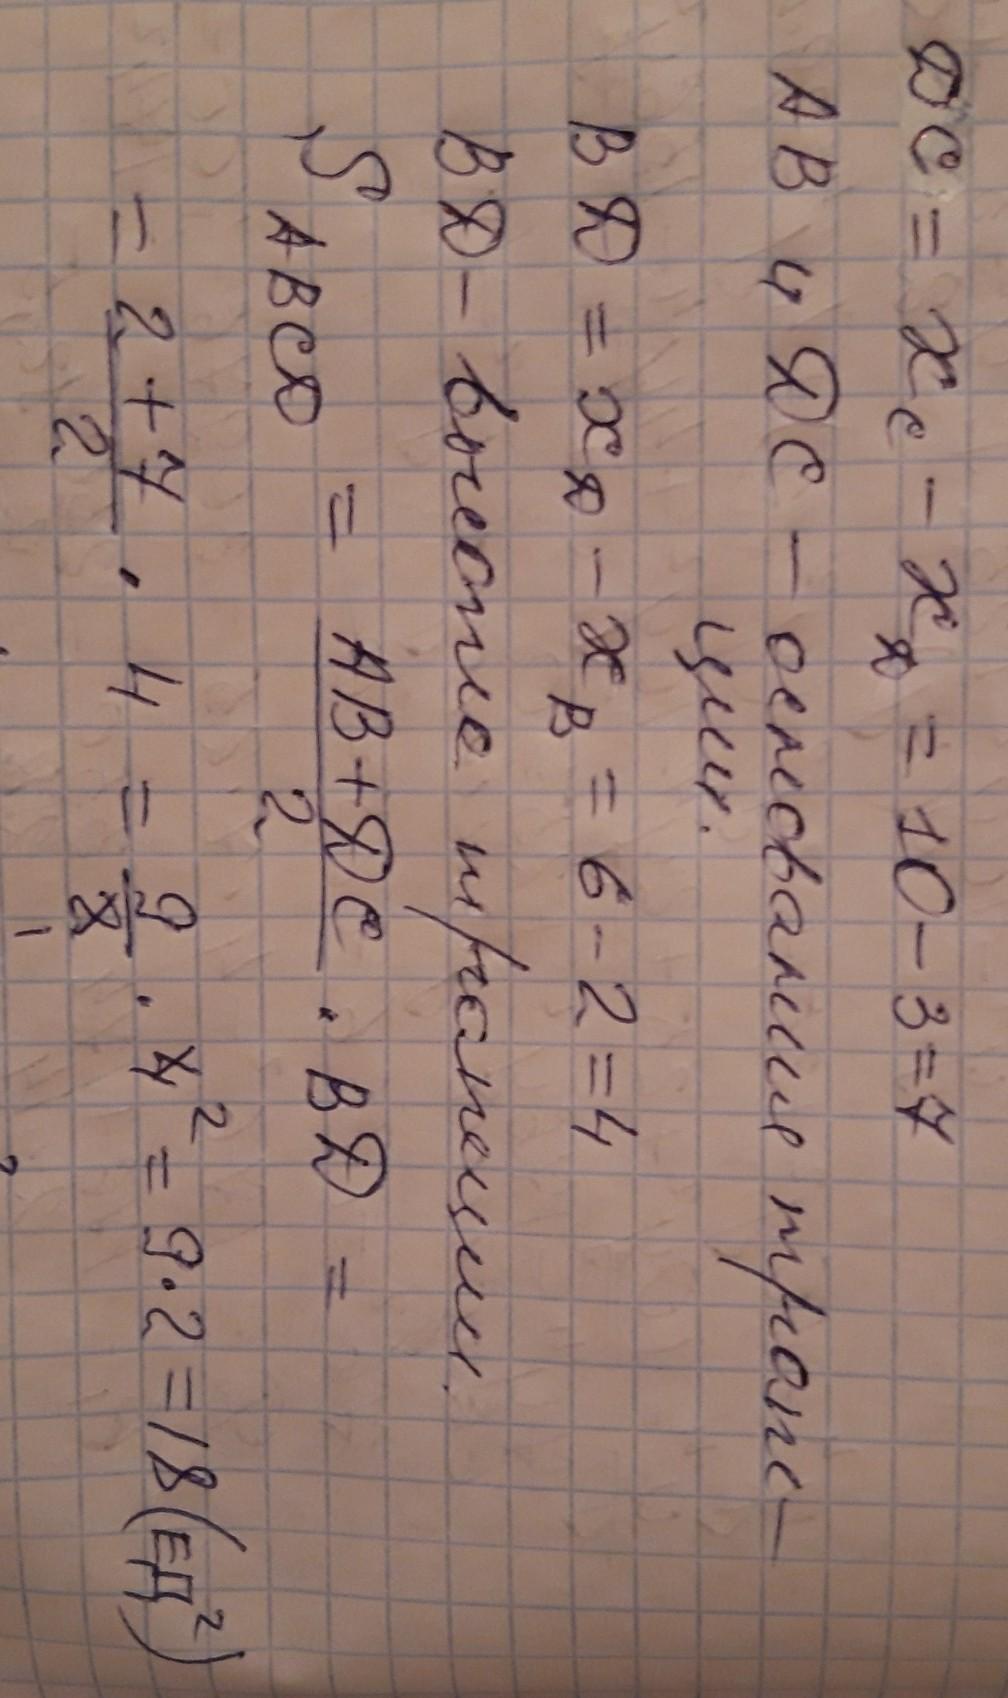 DC = x_C - x_D = 10 - 3 = 7
AB и DC - основание трапе-
ции.
BD = x_D - x_B = 6 - 2 = 4
BD - высота трапеции.
S ABCD = (AB + DC)/2 · BD =
= (2 + 7)/2 · 4 = 9/2 · 4² = 9 · 2 = 18 (ед²)
1